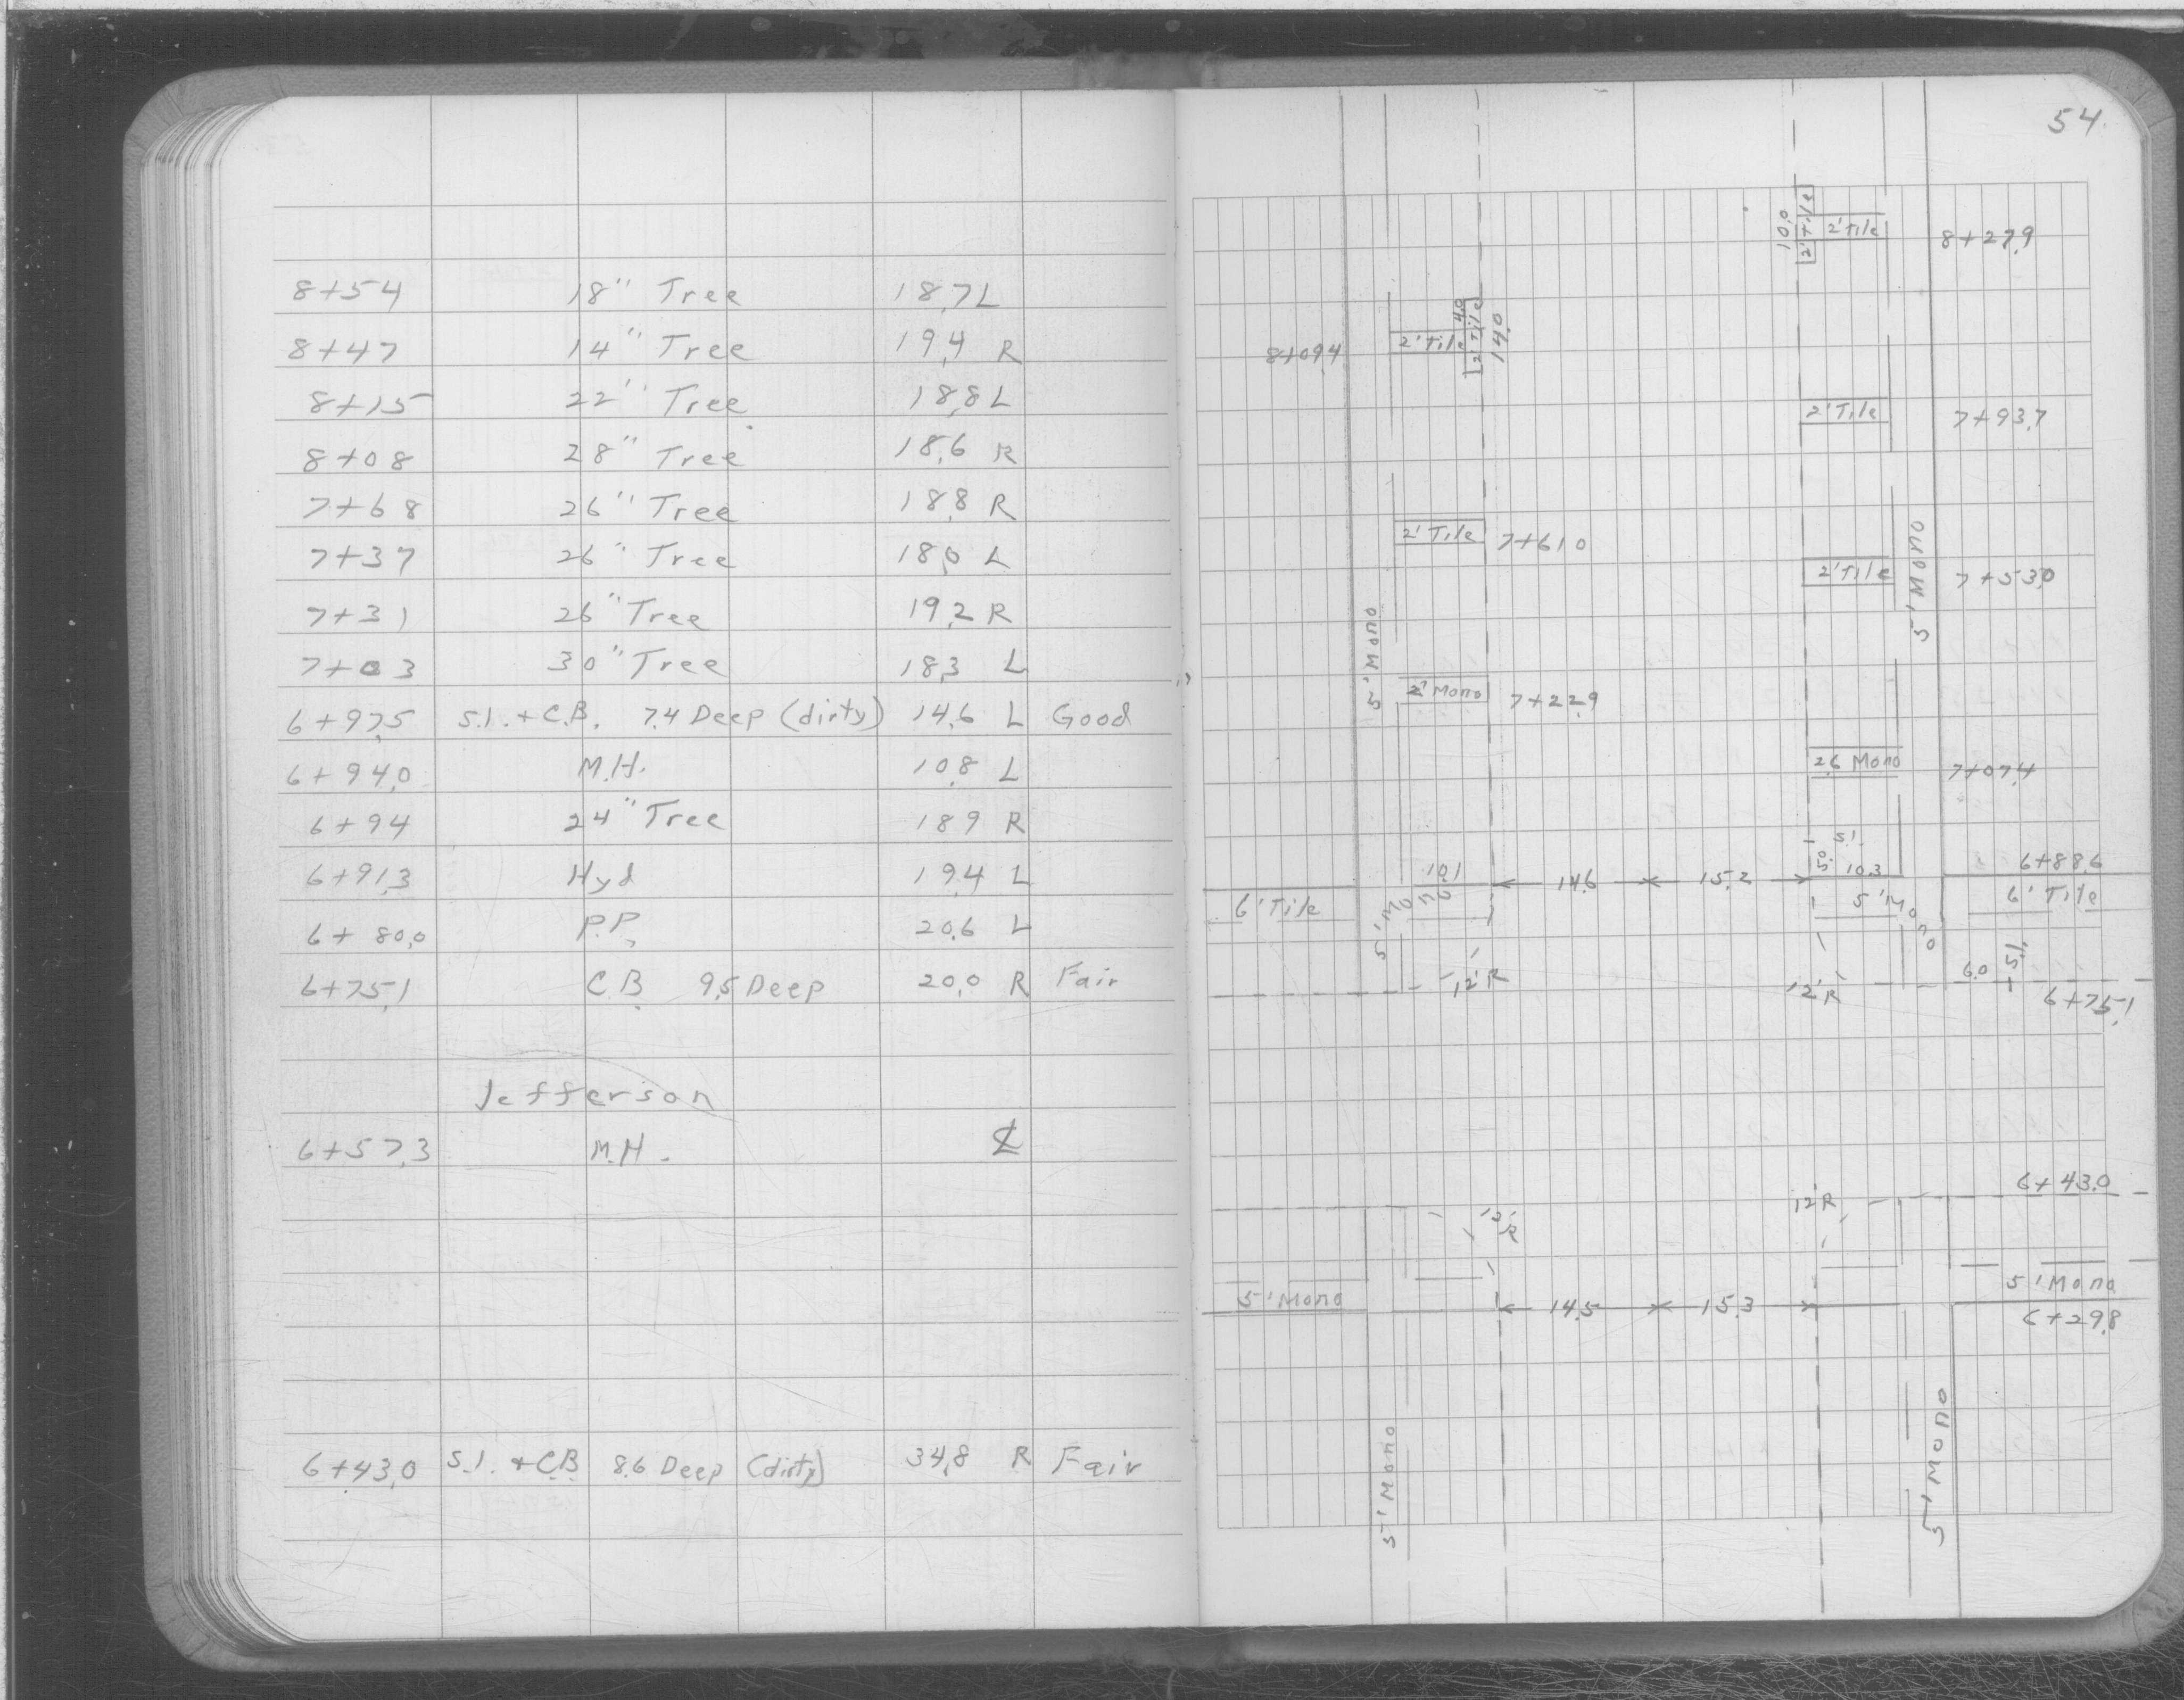 8+54 18" Tree 18.7 L
8+47 14" Tree 19.4 R
8+15 22" Tree 18.8 L
8+08 28" Tree 18.6 R
7+68 26" Tree 18.8 R
7+37 26" Tree 18.0 L
7+31 26" Tree 19.2 R
7+03 30" Tree 18.3 L
6+97.5 S.I. + C.B. 7.4 Deep (dirty) 14.6 L Good
6+94.0 M.H. 10.8 L
6+94 24" Tree 18.9 R
6+91.3 Hyd 19.4 L
6+80.0 P.P. 20.6 L
6+75.1 C.B. 9.5 Deep 20.0 R Fair
Jefferson
6+57.3 M.H. ℄
6+43.0 S.I. + C.B. 8.6 Deep (dirty) 34.8 R Fair
54.
10.0 2' Tile 2' Tile 8+27.9
8+09.4 2' Tile 2' Tile 4.0 14.0
2' Tile 7+93.7
2' Tile 7+61.0
5' Mono
2' Tile 7+53.0
5' Mono
2' Mono 7+22.9
2.6 Mono 7+07.4
S.I.
10.1 14.6 15.2 5.0 10.3 6+88.6
6' Tile 5' Mono 5' Mono 6' Tile
12' R 12' R 6.0 S.I.
6+75.1
12' R 12' R 6+43.0
5' Mono 5' Mono
14.5 15.3 6+29.8
5' Mono 5' Mono